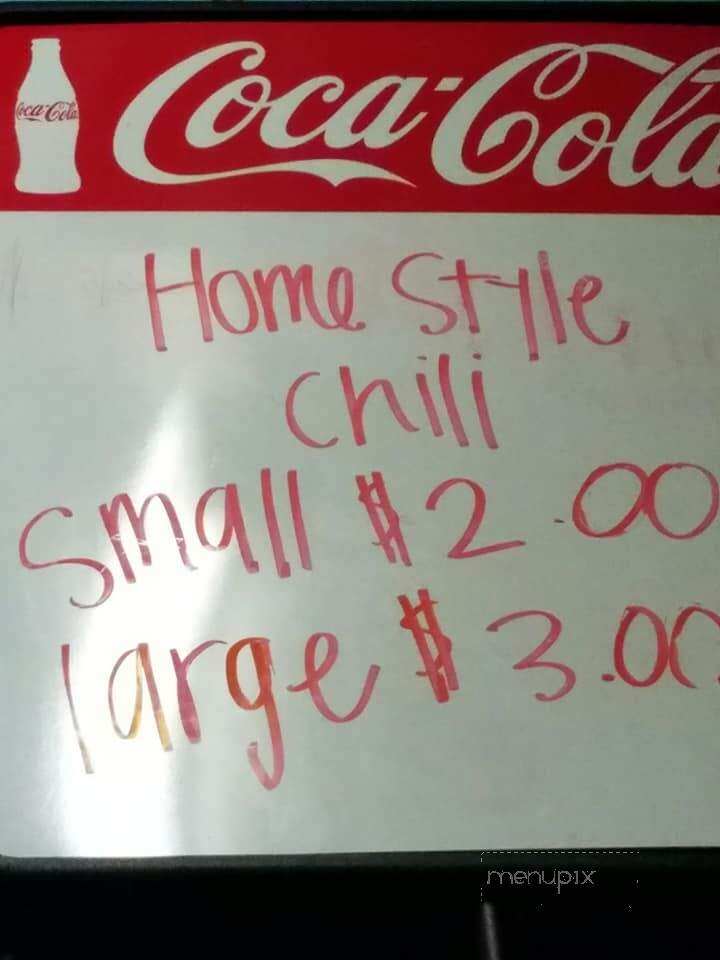 Coca-Cola
Coca-Cola
Home Style
Chili
Small $2.00
large $3.00
menupix